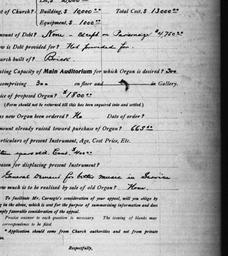 st of Church? Building, $ 10,000 Total Cost, $ 13000
Equipment, $ 1000
mount of Debt? None - except on Parsonage $4,750
ow is Debt provided for? Not provided for.
hurch built of? Brick
ating Capacity of Main Auditorium for which Organ is desired?
omprising 300 on floor and in Gallery.
rice of proposed Organ? $1800
(Form should not be returned till this has been inquired into and settled.)
as new Organ been ordered? No Date of order?
mount already raised toward purchase of Organ? 665
articulars of present Instrument, Age, Cost Price, Etc.
years old. Cost $
eason for displacing present Instrument?
General Demand for better music in Service
ow much is to be realized by sale of old Organ? None.
To facilitate Mr. Carnegie's consideration of your appeal, will you oblige by
ng in the above, which is sent for the purpose of summarizing information and thus
mply favorable consideration of the appeal.
Precise answer to each question is necessary. The issuing of blanks may
correspondence to be filed
*Application should come from Church authorities and not from private
Respectfully,